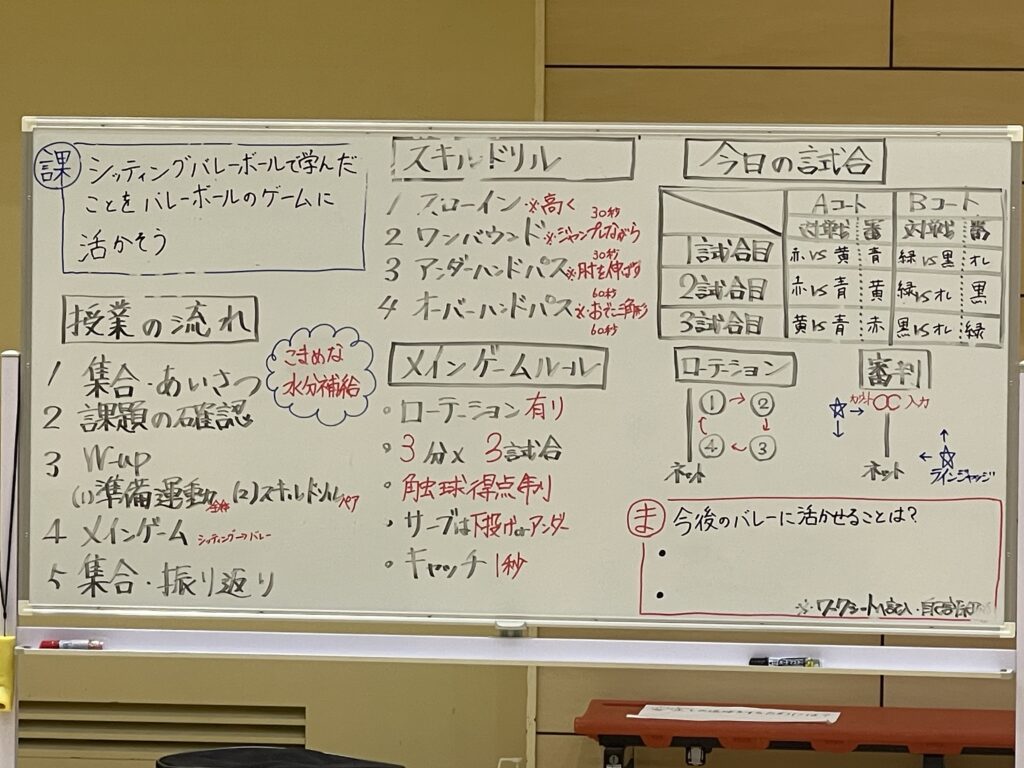 課
シッティングバレーボールで学んだ
ことをバレーボールのゲームに
活かそう
授業の流れ
こまめな
水分補給
1 集合・あいさつ
2 課題の確認
3 W-up
(1)準備運動 全体 (2)スキルドリル ペア
4 メインゲーム シッティング→バレー
5 集合・振り返り
スキルドリル
1 スローイン ※高く
30秒
2 ワンバウンド ※ジャンプしながら
30秒
3 アンダーハンドパス ※肘を伸ばす
60秒
4 オーバーハンドパス ※おでこ三角形
60秒
メインゲームルール
・ローテーション有り
・3分×3試合
・触球得点有り
・サーブは下投げorアンダー
・キャッチ1秒
今日の試合
Aコート Bコート
対戦 審 対戦 審
1試合目 赤vs黄 青 緑vs黒 オレ
2試合目 赤vs青 黄 緑vsオレ 黒
3試合目 黄vs青 赤 黒vsオレ 緑
ローテーション
① → ②
④ ← ③
ネット
審判
入力
ネット
ラインジャッジ
ま 今後のバレーに活かせることは?
・
・
※ワークシート